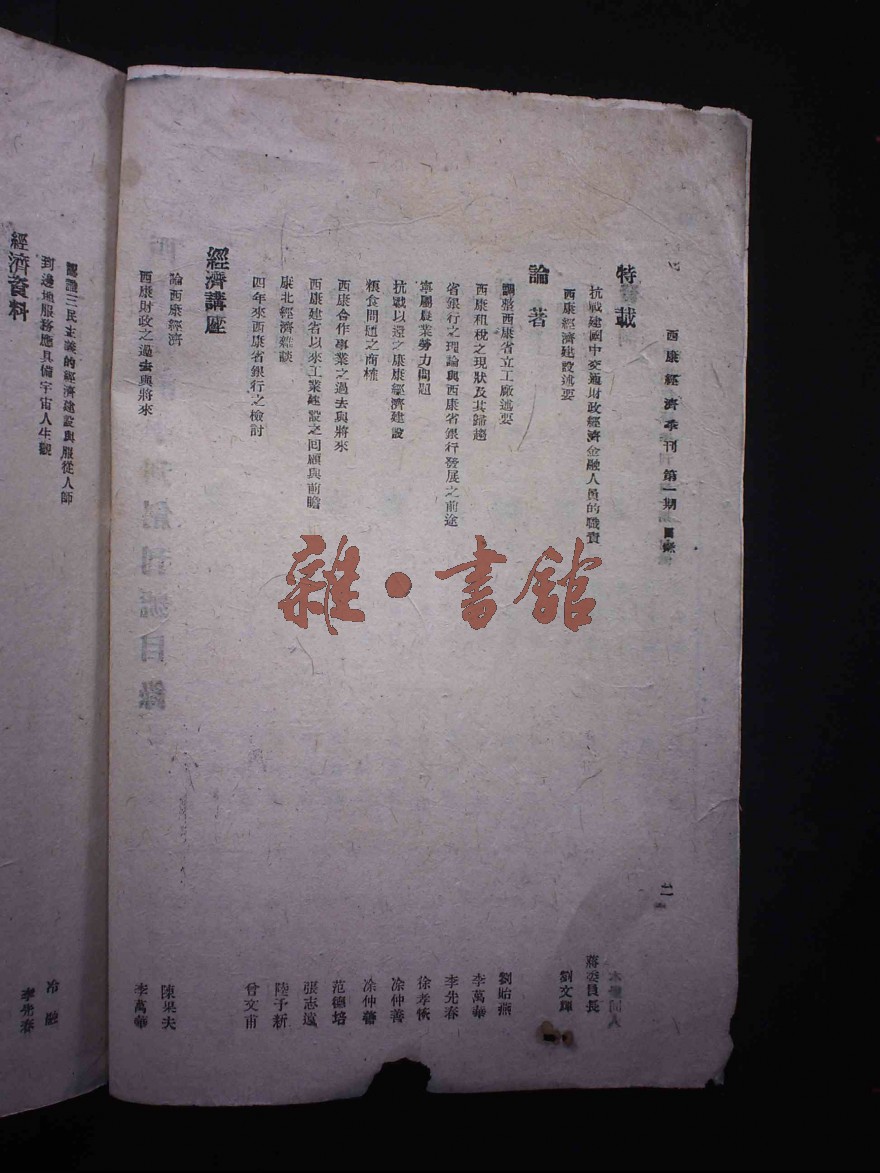 西康經濟季刊 第一期 目錄
二
特載
抗戰建國中交通財政經濟金融人員的職責 蔣委員長
西康經濟建設述要 劉文輝
論著
調整西康省立工廠述要 劉貽燕
西康租稅之現狀及其歸趨 李萬華
省銀行之理論與西康省銀行發展之前途 李先春
寧屬農業勞力問題 徐孝恢
抗戰以還之康康經濟建設 凃仲善
糧食問題之商榷 凃仲
西康合作事業之過去與將來 范德培
西康建省以來工業建設之回顧與前瞻 張志遠
康北經濟雜談 陸予新
四年來西康省銀行之檢討 曾文甫
經濟講座
論西康經濟 陳果夫
西康財政之過去與將來 李萬華
認識三民主義的經濟建設與服從人師 冷融
到邊地服務應具備宇宙人生觀 李先春
經濟資料
雜·書館